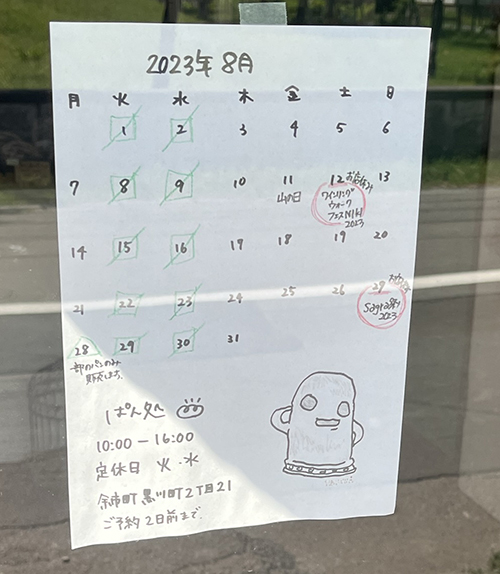 2023年 8月
月 火 水 木 金 土 日
1 2 3 4 5 6
7 8 9 10 11 12 お店休み 13
山の日
ワインリング
ウォーク
2023
14 15 16 17 18 19 20
21 22 23 24 25 26 27
2023
28 29 30 31
部のパンのみ
販売します。
ぱん処
10:00－16:00
定休日 火・水
余市町黒川町2丁目21
ご予約2日前まで.